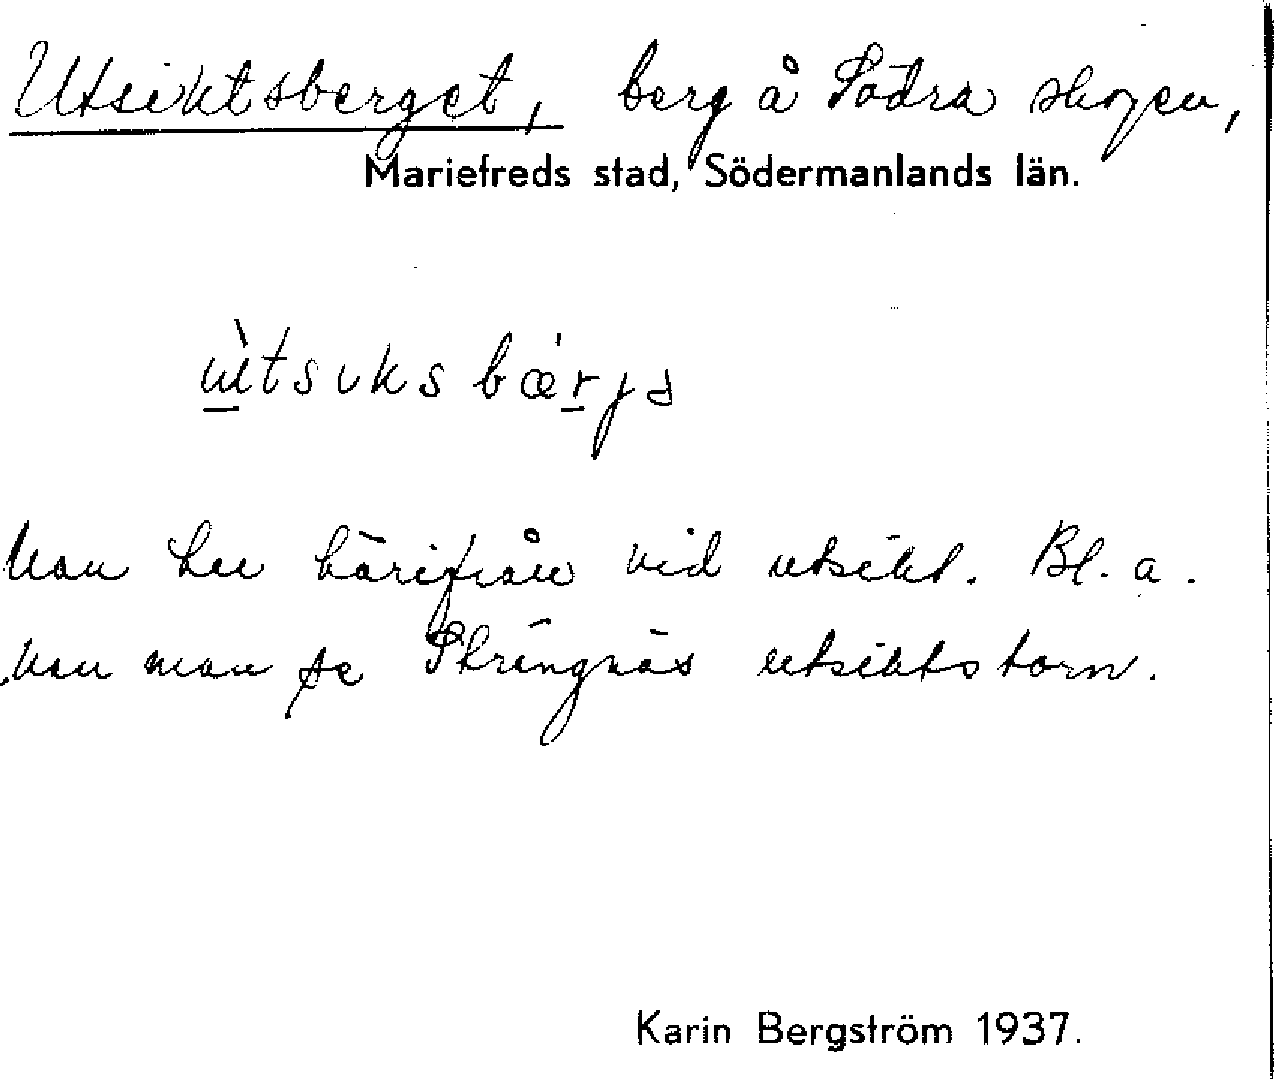 Utsiktsberget, berg å Södra skogen,
Mariefreds stad, Södermanlands län.
ùtsıksbǽrjə
Man har härifrån vid utsikt. Bl. a.
kan man se Strängnäs utsiktstorn.
Karin Bergström 1937.